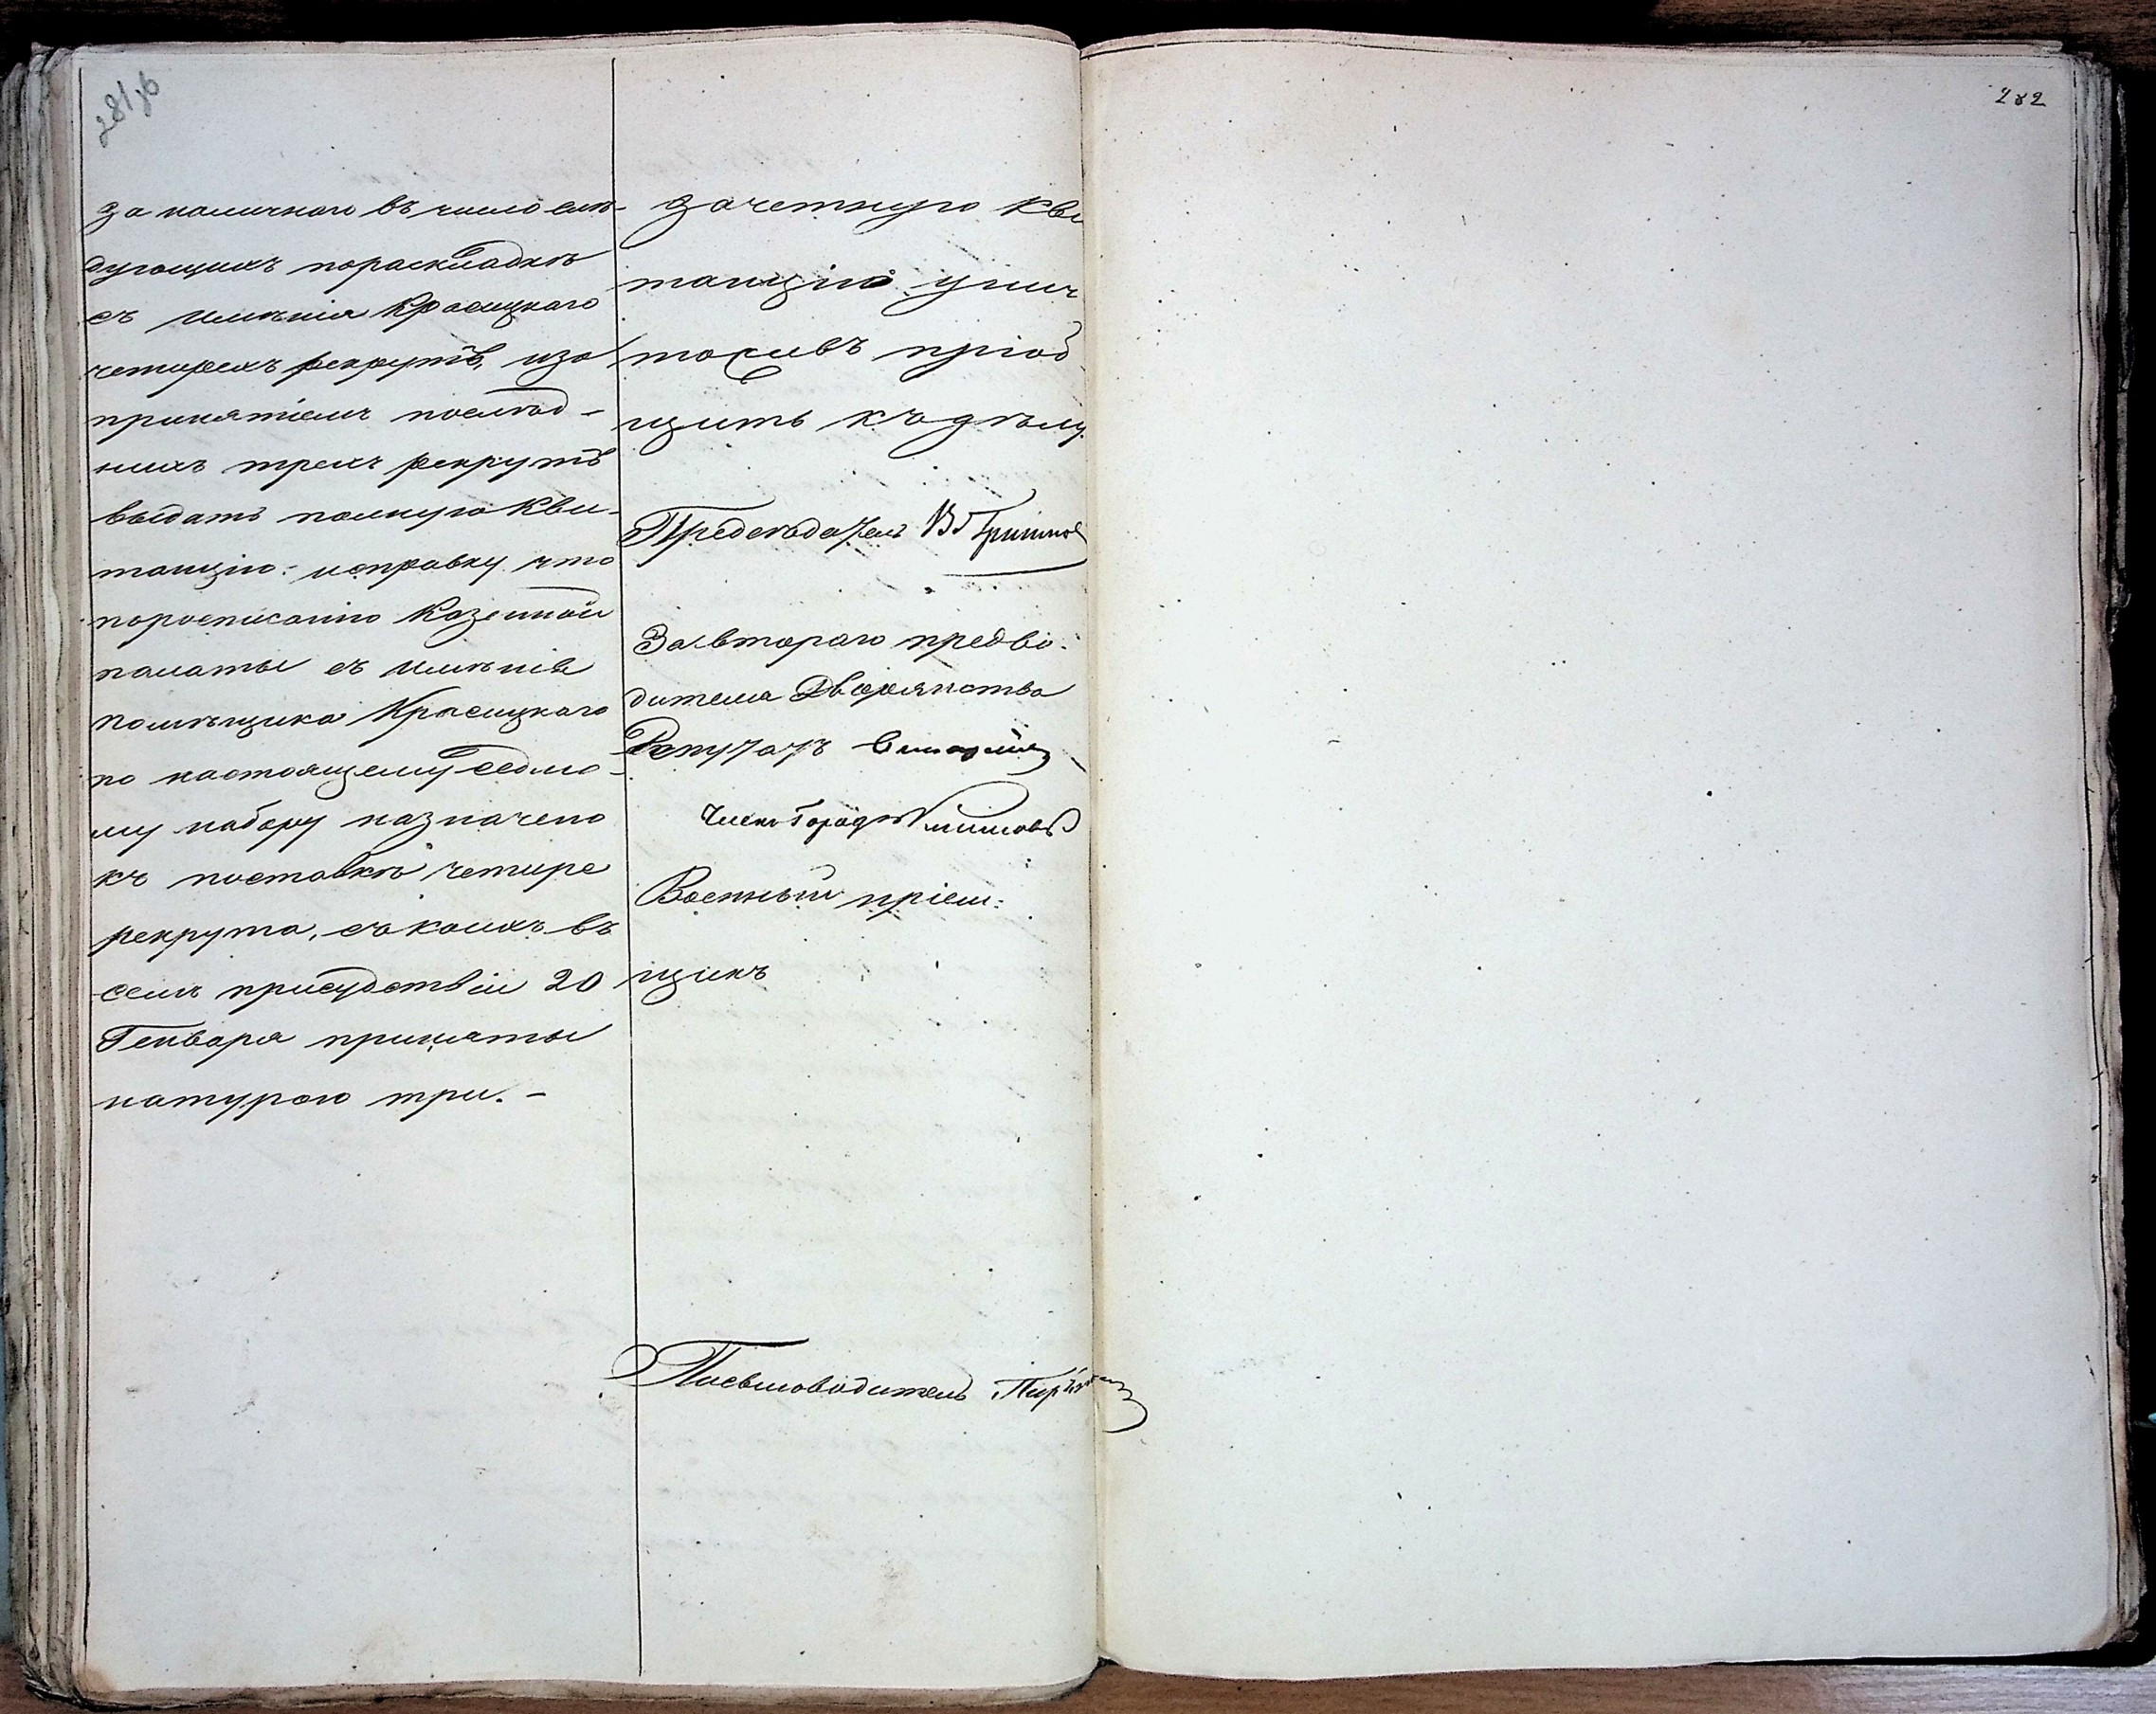 281 об
за наличнаго въ число слѣ-
дующихъ пораскладкѣ
съ имѣнія Красицкаго
четырехъ рекрутъ, изо
принятіемъ послѣд-
нихъ трехъ рекрутъ
выдать полную Кви-
танцію: исправку что
поросписанію Казенной
палаты съ имѣнія
помѣщика Красицкаго
по настоящему седмо-
му набору назначено
къ поставкѣ четыре
рекрута, съкоихъ въ
семъ присудствіи 20
Генваря приняты
натурою три. –
зачетную Кви
танцію унич
тоживъ пріоб
щить къдѣлу.
Председатель
Завтораго предво:
дителя Дворянства
Депутатъ
Членъ Город
Военный пріем:
щикъ
Письмоводитель
282